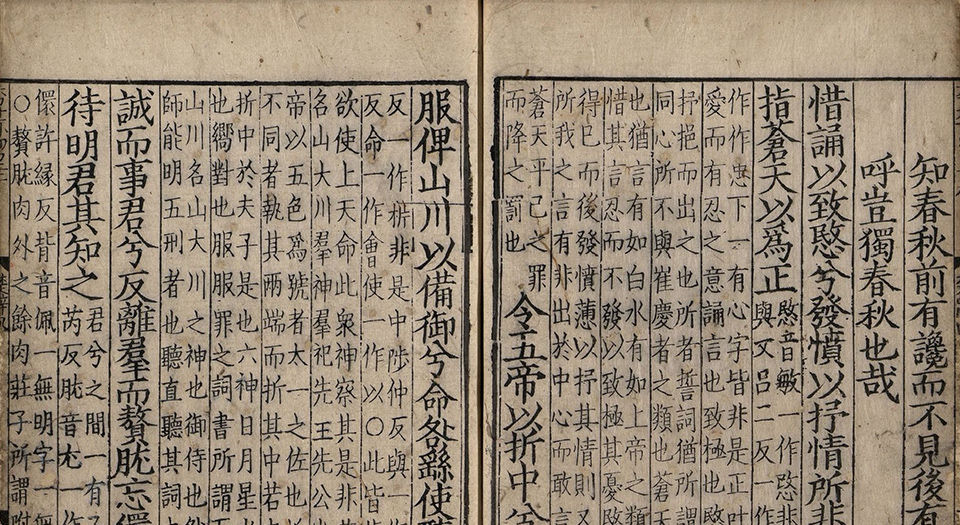 知春秋前有讒而不見後有
呼豈獨春秋也哉
惜誦以致愍兮發憤以抒情所非
指蒼天以爲正
與又呂二反一作
作作忠下一有心字皆非是正叶
愛而有忍之意誦言也致極也
抒挹而出之也所者誓詞猶所謂
同心所不與崔慶者之類也蒼天
也猶言有如白水有如上帝之類
惜其言忍而不發以致極其憂
得已而後發憤懣以抒其情則又
所我之言有非出於中心而敢言
蒼天平己之罪
而降之罰也
令五帝以折中兮
服俾山川以備御兮命咎繇使
反一作枿非是中陟仲反與一
反命一作會使一作以〇此皆
欲使上天命此衆神察其是非
名山大川羣神羣祀先王先公
帝以五色爲號者太一之佐也
不同者執其兩端而折其中若
折中於夫子是也六神日月星
也嚮對也服服罪之詞書所謂五
山川名山大川之神也御侍也
師能明五刑者也聽直聽其詞
誠而事君兮反離羣而贅肬忘儇
待明君其知之
君兮之間一有
芮反肬音尤一作
儇許緣反背音佩一無明字一無
〇贅肬肉外之餘肉莊子所謂附